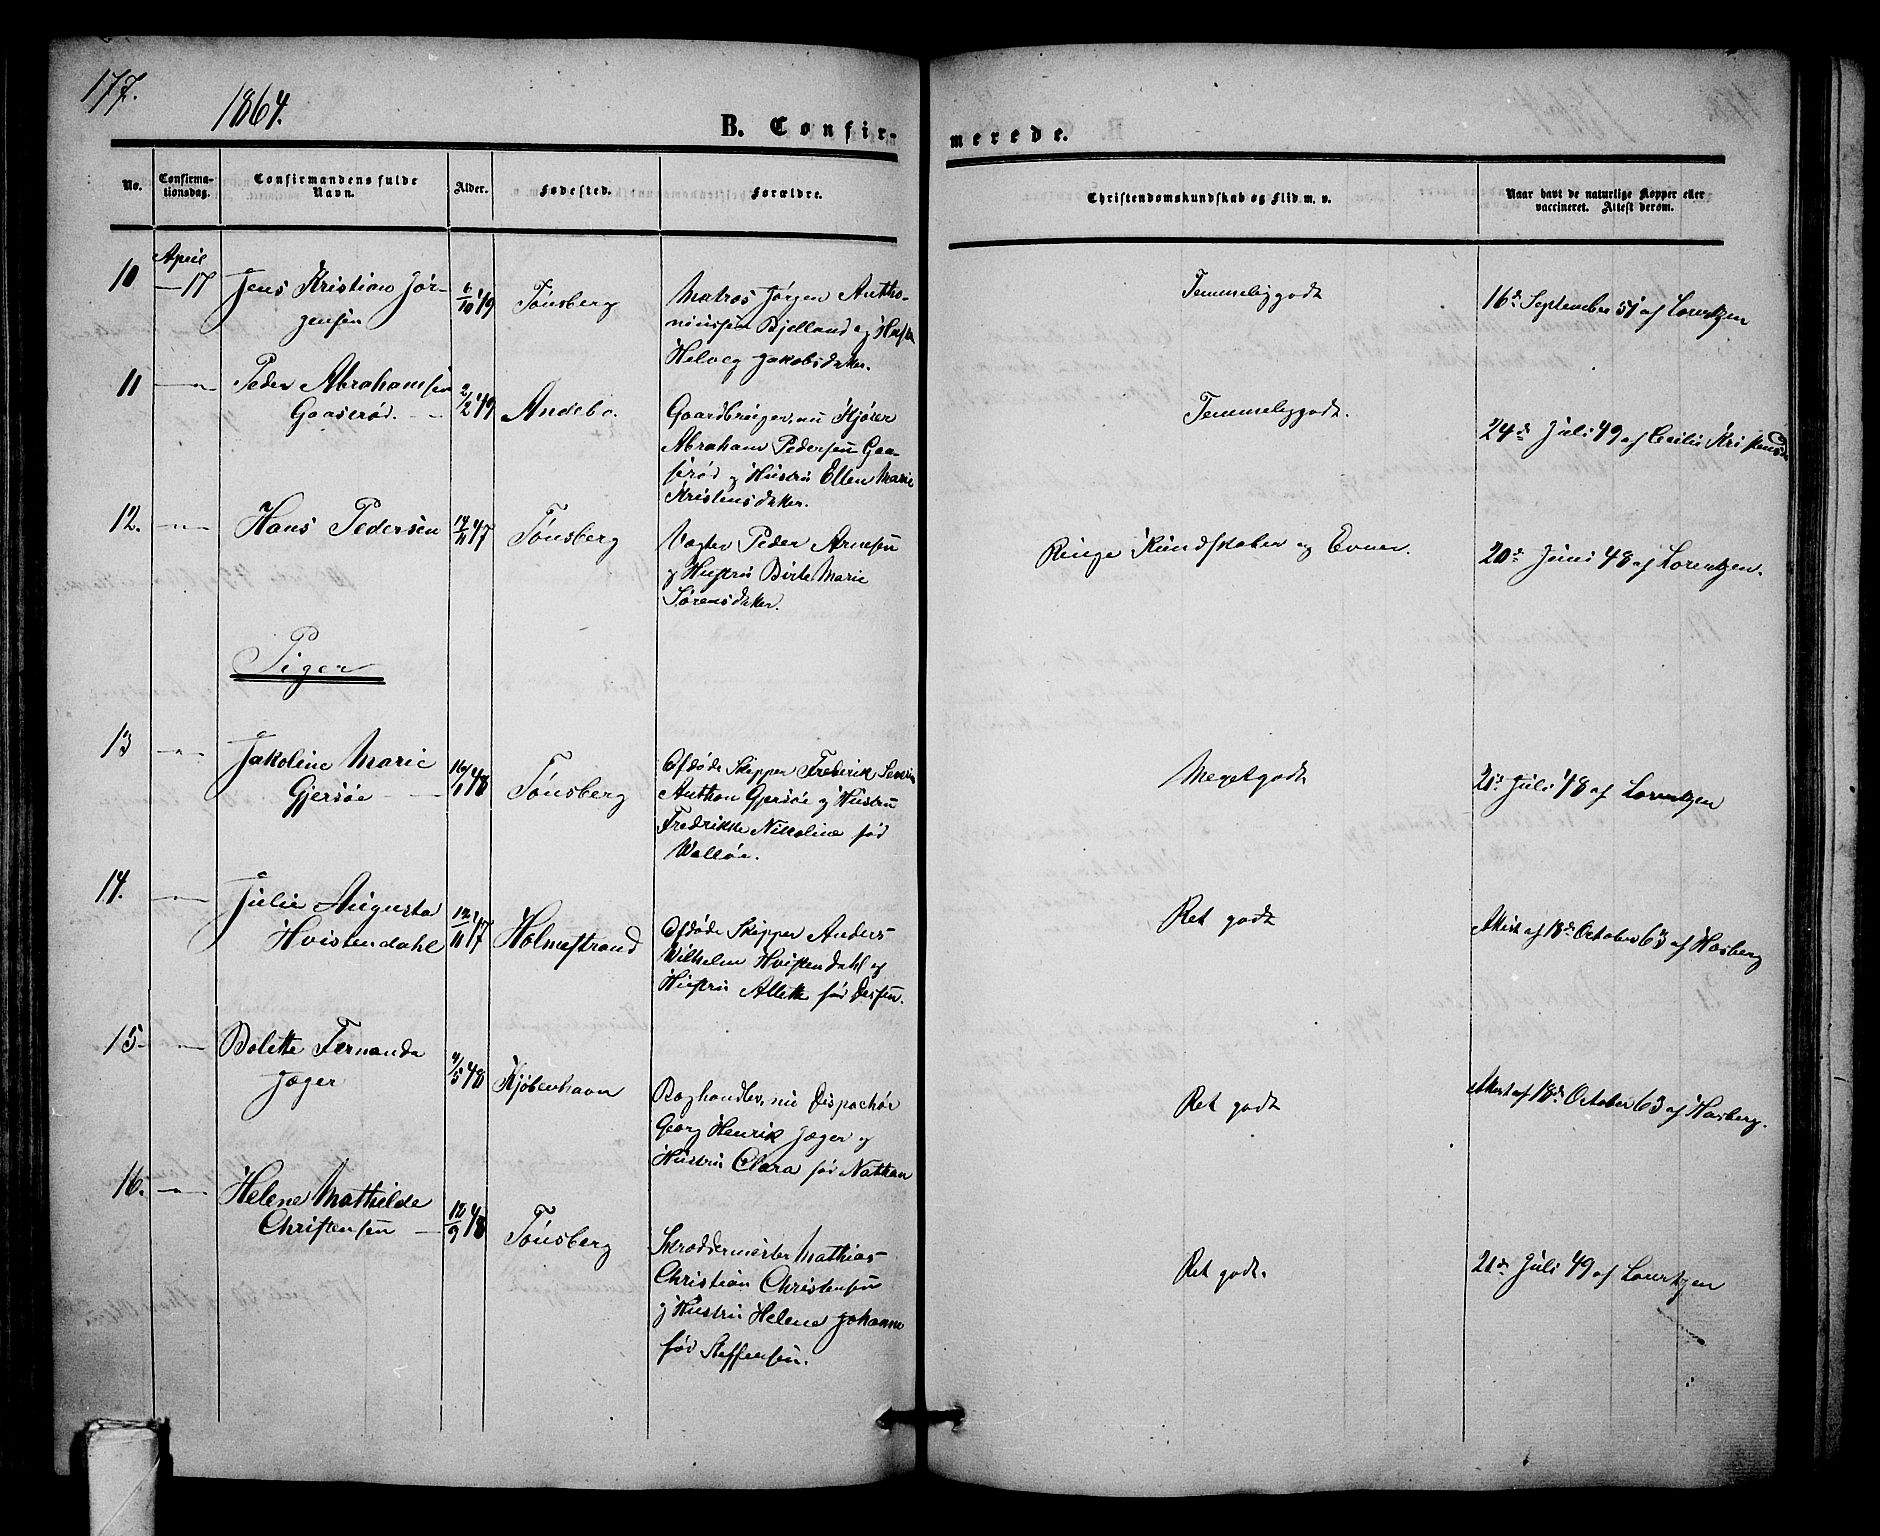 177.
1864.
B. Confir-
merede.
No.
Confirma-
tionsdag.
Confirmandens fulde
Navn.
Alder.
Fødested.
Forældre.
Christendomskundskab og Flid m. v.
Naar havt de naturlige Kopper eller
vaccineret. Attest derom.
10 April 17 Jens Kristian Jør-
gensen
6/10 49 Tønsberg
Matros Jørgen Antho-
niussen Bjelland og Hustru
Helveg Jakobsdatter.
Temmelig godt
16de September 51 af Lorentzen
11 Peder Abrahamsen
Gaaserød.
2/2 49 Andebo.
Gaardbruger, nu Kjører
Abraham Pedersen Gaa-
serød og Hustru Ellen Marie
Kristensdatter.
Temmelig godt.
24de Juli 49 af Cecilie Kristensd.
12. Hans Pedersen
14/11 47 Tønsberg
Vægter Peder Arnesen
og Hustru Birte Marie
Sørensdatter.
Ringe Kundskaber og Evner.
20de Juni 48 af Lorentzen.
Piger
13 Jakoline Marie
Gjersøe
16/1 48 Tønsberg
Afdøde Skipper Frederik Severin
Anthon Gjersøe og Hustru
Fredrikke Nikoline fød
Walløe.
Meget godt
21de Juli 48 af Lorentzen
14. Julie Augusta
Hvistendahl
12/11 47 Holmestrand
Afdøde Skipper Anders
Wilhelm Hvistendahl og
Hustru Alette fød
Ret godt
Attest af 18de October 63 af Hasberg
15 Bolette Fernanda
Jæger
4/5 48 Kjøbenhavn
Boghandler, nu Dispachør
Georg Henrik Jæger og
Hustru Clara fød Nathan
Ret godt
Attest af 18de October 63 af Hasberg.
16. Helene Mathilde
Christensen
12/9 48 Tønsberg
Skræddermester Mathias
Christian Christensen
og Hustru Helene Johanne
fød Steffensen.
Ret godt.
21de Juli 49 af Lorentzen